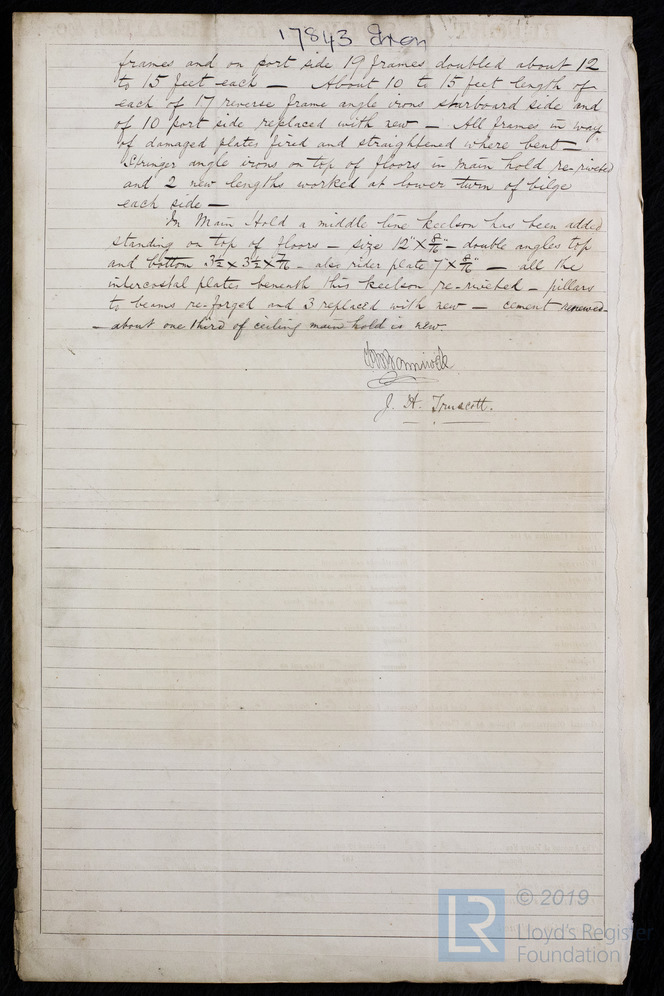 17843 Iron
frames and on port side 19 frames doubled about 12
to 15 feet each — About 10 to 15 feet length of
each of 17 reverse frame angle irons starboard side and
of 10 port side replaced with new — All frames in way
of damaged plates fired and straightened where bent —
Stringer angle irons on top of floors in main hold re-riveted
and 2 new lengths worked at lower turn of bilge
each side —
In Main Hold a middle line keelson has been added
standing on top of floors — size 12" × 8/16" — double angles top
and bottom 3½ × 3½ × 7/16 — also rider plate 7" × 8/16" — all the
intercostal plates beneath this keelson re-riveted — pillars
to beams re-forged and 3 replaced with new — cement renewed —
— about one third of ceiling main hold is new.
J. H. Truscott.
LR
© 2019
Lloyd's Register
Foundation